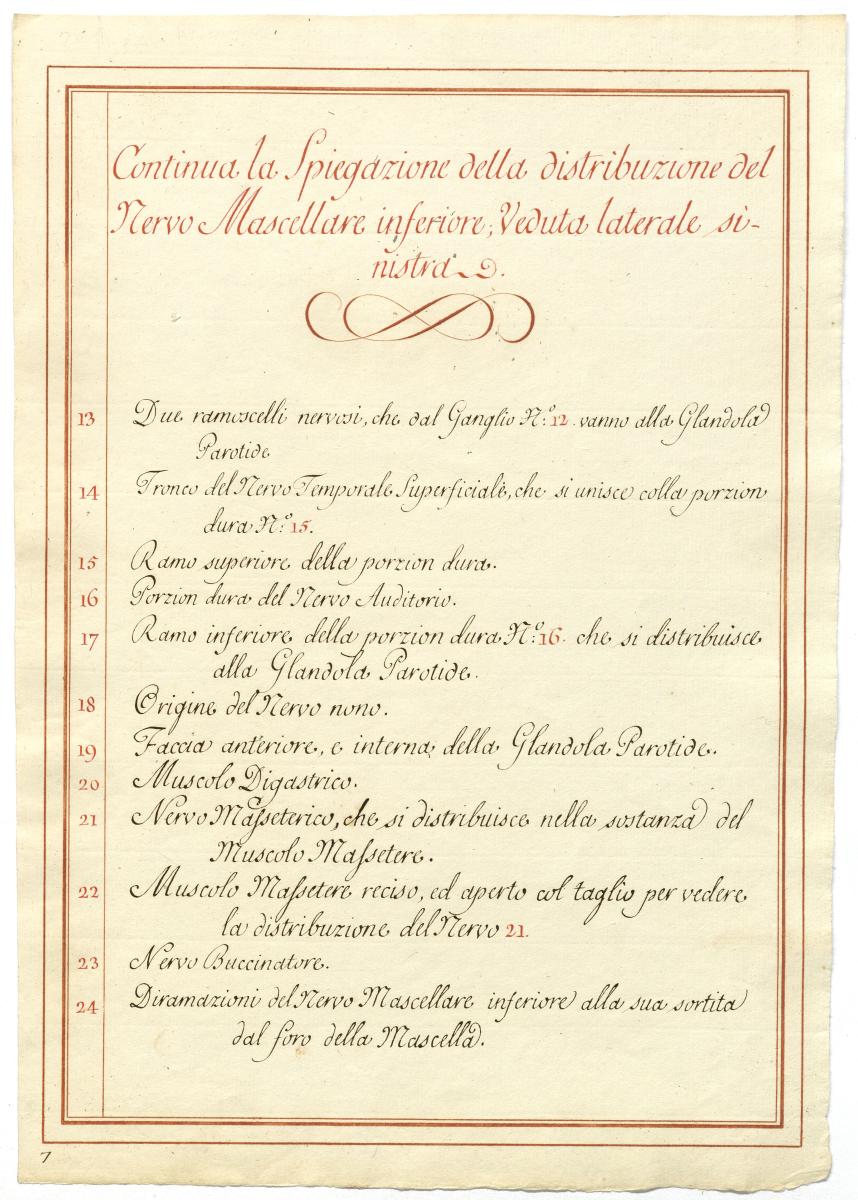 Continua la Spiegazione della distribuzione del
Nervo Mascellare inferiore, Veduta laterale si-
nistra.
13 Due ramoscelli nervosi, che dal Ganglio N:º 12. vanno alla Glandola
Parotide
14 Tronco del Nervo Temporale Superficiale, che si unisce colla porzion
dura N:º 15.
15 Ramo superiore della porzion dura.
16 Porzion dura del Nervo Auditorio.
17 Ramo inferiore della porzion dura N:º 16. che si distribuisce
alla Glandola Parotide.
18 Origine del Nervo nono.
19 Faccia anteriore, e interna della Glandola Parotide.
20 Muscolo Digastrico.
21 Nervo Maſseterico, che si distribuisce nella sostanza del
Muscolo Maſsetere.
22 Muscolo Maſsetere reciso, ed aperto col taglio per vedere
la distribuzione del Nervo 21.
23 Nervo Buccinatore.
24 Diramazioni del Nervo Mascellare inferiore alla sua sortita
dal foro della Mascella.
7